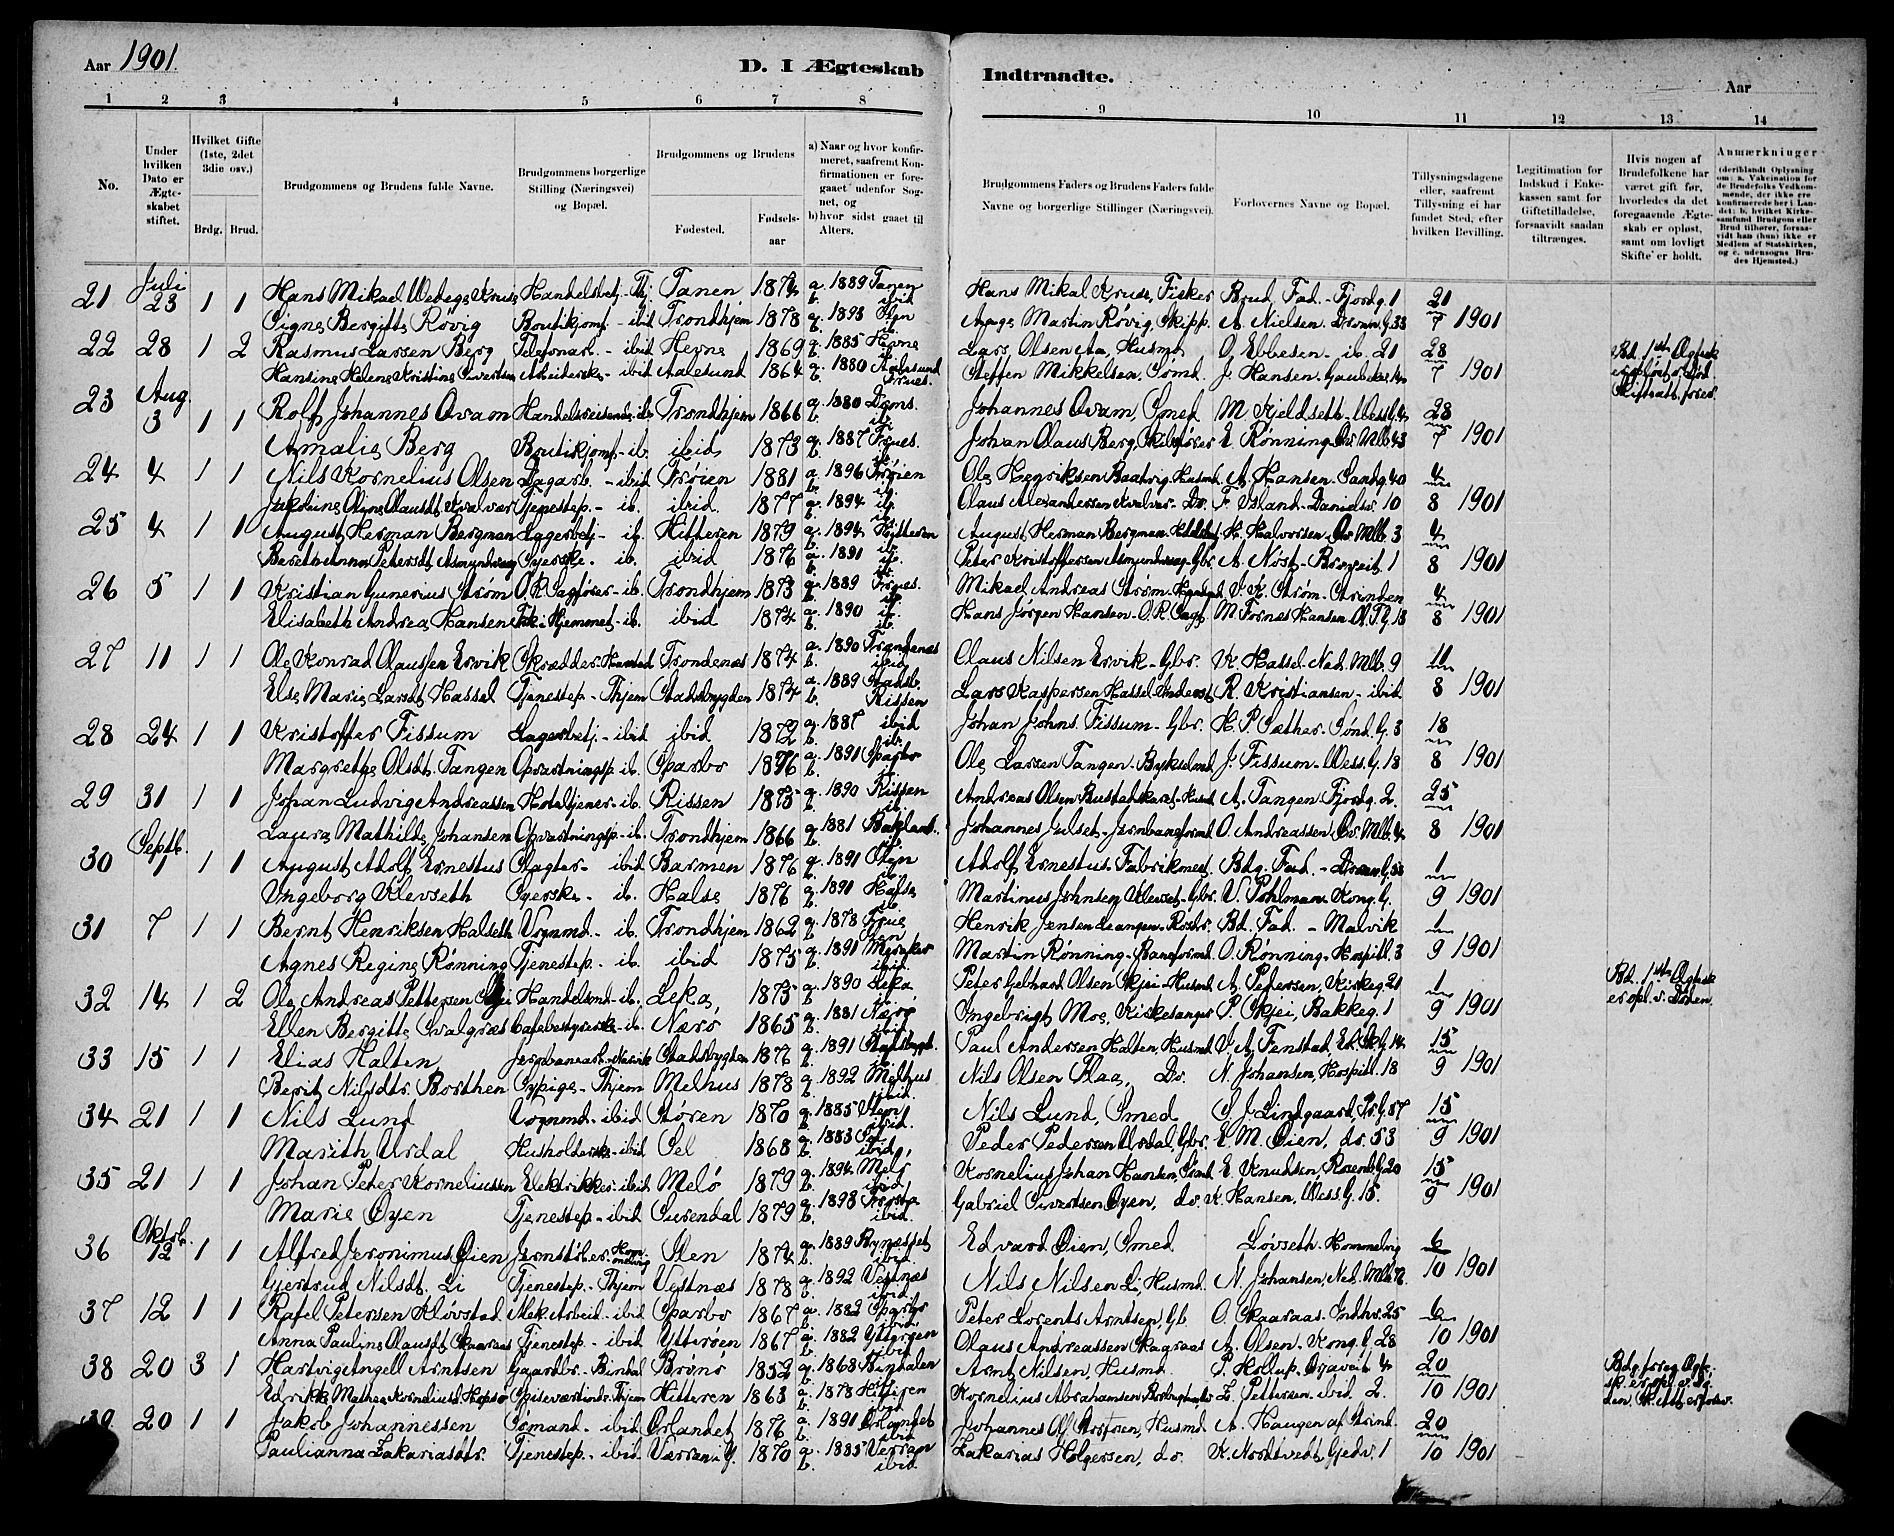 Aar 1901
D. I Ægteskab Indtraadte. Aar
1 2 3 4 5 6 7 8 9 10 11 12 13 14
No.
Under hvilken Dato er Ægteskabet stiftet.
Hvilket Gifte (1ste, 2det 3die osv.)
Brdg. Brud.
Brudgommens og Brudens fulde Navne.
Brudgommens borgerlige Stilling (Næringsvei) og Bopæl.
Brudgommens og Brudens
Fødested. Fødsels-aar
a) Naar og hvor konfirmeret, saafremt Konfirmationen er foregaaet udenfor Sognet, og
b) hvor sidst gaaet til Alters.
Brudgommens Faders og Brudens Faders fulde Navne og borgerlige Stillinger (Næringsvei).
Forlovernes Navne og Bopæl.
Tillysningsdagene eller, saafremt Tillysning ei har fundet Sted, efter hvilken Bevilling.
Legitimation for Indskud i Enkekassen samt for Giftetilladelse, forsaavidt saadan tiltrænges.
Hvis nogen af Brudefolkene har været gift før, hvorledes da det foregaaende Ægteskab er opløst, samt om lovligt Skifte er holdt.
Anmærkninger
(deriblandt Oplysning om: a. Vakcination for de Brudefolks Vedkommende, der ikke ere konfirmerede her i Landet; b. hvilket Kirkesamfund Brudgom eller Brud tilhører, forsaavidt han (hun) ikke er Medlem af Statskirken, og c. udensogns Brudes Hjemsted.)
Juli
21 23 1 1 Hans Mikael Wedege Kruse Handelsbetj.-Thj. Tanen 1874 a. 1889 Tanen b. ibid Hans Mikal Kruse, Fisker Brud. Fad. - Fjordg. 1 21
Signe Bergitte Røvig Butikjomf. - ibid Trondhjem 1878 a. 1893 Ilen b. ib. Aage Martin Røvig, Skipp. A. Nielsen. Dronn. G. 33 7 1901
22 28 1 2 Rasmus Larsen Berg Telefonarb. - ibid Hevne 1869 a. 1885 Hevne b. ib. Lars Olsen Aa, Husmd. O. Ebbesen - ib. 21 28 Bd. 1ste Ægtesk.
Hansine Helene Kristine Sivertsen Arbeiderske - ibid Aalesund 1864 a. 1880 Aalesund b. Frues. Steffen Mikkelsen, Sømd. J. Hansen. 7 1901
Aug.
23 3 1 1 Rolf Johannes Qvam Handelsreisende - ib. Trondhjem 1866 a. 1880 Doms. b. ib. Johannes Qvam, Smed M. Kjeldseth - Wess. G. 4 28
Amalie Berg Butikjomf. - ib. ibid 1873 a. 1887 Frues. b. ib. Johan Olaus Berg, Skibsfører E. Rønning - Øv. Mlb. 43 7 1901
24 4 1 1 Nils Kornelius Olsen Dagarb. - ibid Frøien 1881 a. 1896 Frøien b. ib. Ole Henriksen Husmd. A. Hansen. Sandg. 40 4
Tjenestep. - ib. ibid. 1877 a. 1894 ib. b. ib. Olaus Alexandersen Kvalvær - Do. P. Island - Danielsv. 10 8 1901
25 4 1 1 August Herman Bergman Lagerbetj. - ib. Hitteren 1879 a. 1894 Hitteren b. ib. August Herman Bergman. H. Halvorsen - Øv. Mlb. 3 4
Syerske. - ib. ibid 1876 a. 1891 ib. b. ib. Peter Kristoffersen Gbr. A. Nøst - 1 8 1901
26 5 1 1 Kristian Gunerius Strøm O.R.Sagfører - ib. Trondhjem 1873 a. 1889 Frues. b. ib. Mikael Andreas Strøm - S. K. Strøm - Strinden 4
Elisabeth Andrea Hansen Frk. i Hjemmet - ib. ibid 1874 a. 1890 ib. b. ib. Hans Jørgen Hansen - O.R.Sagf. M. Fornæs Hansen. Ol. T. G. 18 8 1901
27 11 1 1 Ole Konrad Olaussen Ervik Skrædder - Trondenæs 1874 a. 1890 Trondenæs b. ibid Olaus Nilsen Ervik - Gbr. K. Hassel - Ned. Mlb. 9 11
Else Marie Larsdt. Hassel Tjenestep. - Thjem Stadsbygden 1874 a. 1889 Stadsb. b. Rissen Lars Kaspersen Hassel, Inderst R. Kristiansen - ibid 8 1901
28 24 1 1 Kristoffer Fissum Lagerbetj. - ibid ibid 1872 a. 1887 ibid b. ib. Johan Johns. Fissum - Gbr. H. P. Sæther - Sønd. G. 3 18
Margrethe Olsdt. Tangen Opvartningsp. ib. Sparbo 1876 a. 1891 Sparbo b. ib. Ole Larsen Tangen - Bykselmd. J. Fissum - Wess. G. 18 8 1901
29 31 1 1 Johan Ludvig Andreassen Hoteltjener - ib. Rissen 1875 a. 1890 Rissen b. ib. Andreas Olsen Husmd. A. Tangen Fjordg. 2. 25
Laura Mathilde Johansen Opvartningsp. - ib. Trondhjem 1866 a. 1881 Bakland. b. ib. Johannes Julset - Jernbaneformd. O. Andreassen Øv. Mlb. 4 8 1901
Septb.
30 1 1 1 August Adolf Ernestus Slagter - ibid Barmen 1876 a. 1891 Ilen b. ib. Adolf Ernestus. Fabrikmest. Bdg. Fad. - Dronn. G. 1
Ingeborg Klevseth Syerske. - ib. Halse 1876 a. 1891 Halse b. ib. Martinus Johnsen Klevset - Gbr. V. Pohlman - Kong. G. 9 1901
31 7 1 1 Bernt Henriksen Halseth Vognmd. - ib. Trondhjem 1862 a. 1878 Frue b. Ilen Henrik Jensen Bd. Fad. - Malvik 1
Agnes Regine Rønning Tjenestep. - ib. ibid 1875 a. 1891 Meraker b. ibid. Martin Rønning - Baneformd. O. Rønning - Hospitl. 3 9 1901
32 14 1 2 Ole Andreas Pettersen Skjei Handelsmd. - ib. Leka 1875 a. 1890 Leka b. ib. Peter Gebhard Olsen Skjei - Husmd. A. Pedersen, Kirkeg. 21 1 Bd. 1ste Ægtesk.
Ellen Bergitte Svalgræs Cafebestyrerske - ib. Nærø 1865 a. 1881 Nærø b. ibid Ingebrigt Moe, Kirkesanger P. Skjei, Bakkeg. 1 9 1901 er opl. v. Døden.
33 15 1 1 Elias Halten Jernbanearb. Stadsbygden 1876 a. 1891 Stadsbygd. b. ib. Paul Andersen Halten, Husmd. J. A. Fenstad, 14. 15
Berit Nilsdtr. Borthen Sypige - Thjem Melhus 1878 a. 1892 Melhus b. ibid. Nils Olsen Flaa, Do. N. Johansen, Hospitl. 18 9 1901
34 21 1 1 Nils Lund Vognmd. - ibid Støren 1870 a. 1885 Støren b. ibid. Nils Lund, Smed S. J. Lindgaard, Pr. G. 57 15
Marith Ursdal Husholderske - ibid Sel 1868 a. 1883 Sel b. ibid Peder Pedersen Ursdal, Gbr. E. M. Øien, do. 53 9 1901
35 21 1 1 Johan Peter Korneliussen Elektriker - ibid Melø 1879 a. 1894 Melø b. ibid Kornelius Johan Hansen, Sømd. E. Knudsen, Rosenb. G. 20 15
Marie Øyen Tjenestep. - ibid Surendal 1879 a. 1893 Frosta b. ibid. Gabriel Sivertsen Øyen, do. K. Hansen, Wess. G. 15. 9 1901
Oktob.
36 12 1 1 Alfred Jeronimus Øien Jernstøber - Hommelvig Ilen 1874 a. 1889 Bynæsset b. ibid. Edvard Øien, Smed Løvseth - Hommelvig 6
Gjertrud Nilsdt. Li Tjenestep. - Thjem Vestnæs 1878 a. 1892 Vestnæs b. ibid. Nils Nilsen Li, Husmd. N. Johansen, Ned. Mlb. 10 1901
37 12 1 1 Rafel Petersen Kløvstad Mek. Arbeid. - ibid Sparbo 1867 a. 1882 Sparbo b. ibid. Peter Lorents Arntsen, Gb. O. Skaaraas. Indhr. 25 6
Anna Pauline Olausdt. Skaaraas Tjenestep. - ibid Ytterøen 1867 a. 1882 Ytterøen b. ibid Olaus Andreassen Skaaraas A. Olsen. Kong. G. 28 10 1901
38 20 3 1 Hartvig Angell Arntsen Gaardbr. - Bindal Brønø 1852 a. 1868 Bindalen b. ib. Arnt Nilsen, Husmd. P. Hollup. 4 20
Spiseværtinde Thjem Hitteren 1863 a. 1878 Hitteren b. ibid Kornelius Abrahamsen L. Pettersen. ibid 2. 10 1901
39 20 1 1 Jakob Johannessen Sømand - ibid Ørlandet 1876 a. 1891 Ørlandet b. ibid Johannes Husmd. A. Haugen af Strind. 20
Paulianna Zakariasdtr. Tjenestep. - ibid. Værran Y. 1870 a. 1885 Verran b. ibid Zakarias Holgersen, do. K. Nordtvedt, Gjedv. 1 10 1901